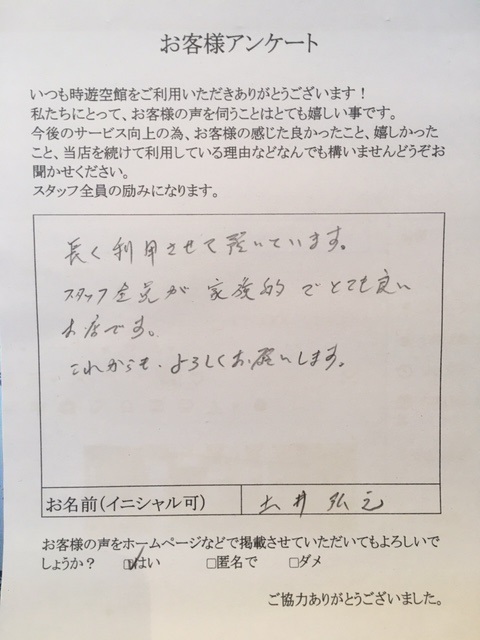 お客様アンケート
いつも時遊空館をご利用いただきありがとうございます！
私たちにとって、お客様の声を伺うことはとても嬉しい事です。
今後のサービス向上の為、お客様の感じた良かったこと、嬉しかった
こと、当店を続けて利用している理由などなんでも構いませんどうぞお
聞かせください。
スタッフ全員の励みになります。
長く利用させて頂いています。
スタッフ全員が家族的でとても良い
お店です。
これからも、よろしくお願いします。
お名前（イニシャル可）
土井 弘之
お客様の声をホームページなどで掲載させていただいてもよろしいで
しょうか？ ☑はい □匿名で □ダメ
ご協力ありがとうございました。